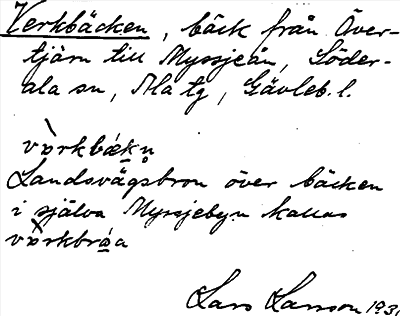 Verkbäcken, bäck från Över-
tjärn till Myssjeån, Söder-
ala sn, Ala tg, Gävleb. l.
Landsvägsbron över bäcken
i själva Myssjebyn kallas
Lars Larsson